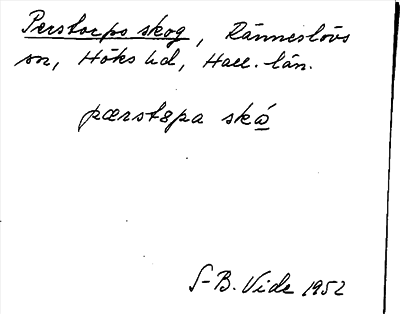 Perstorps skog, Ränneslövs
sn, Höks hd, Hall. län.
pærstapa skå
S-B. Vide 1952